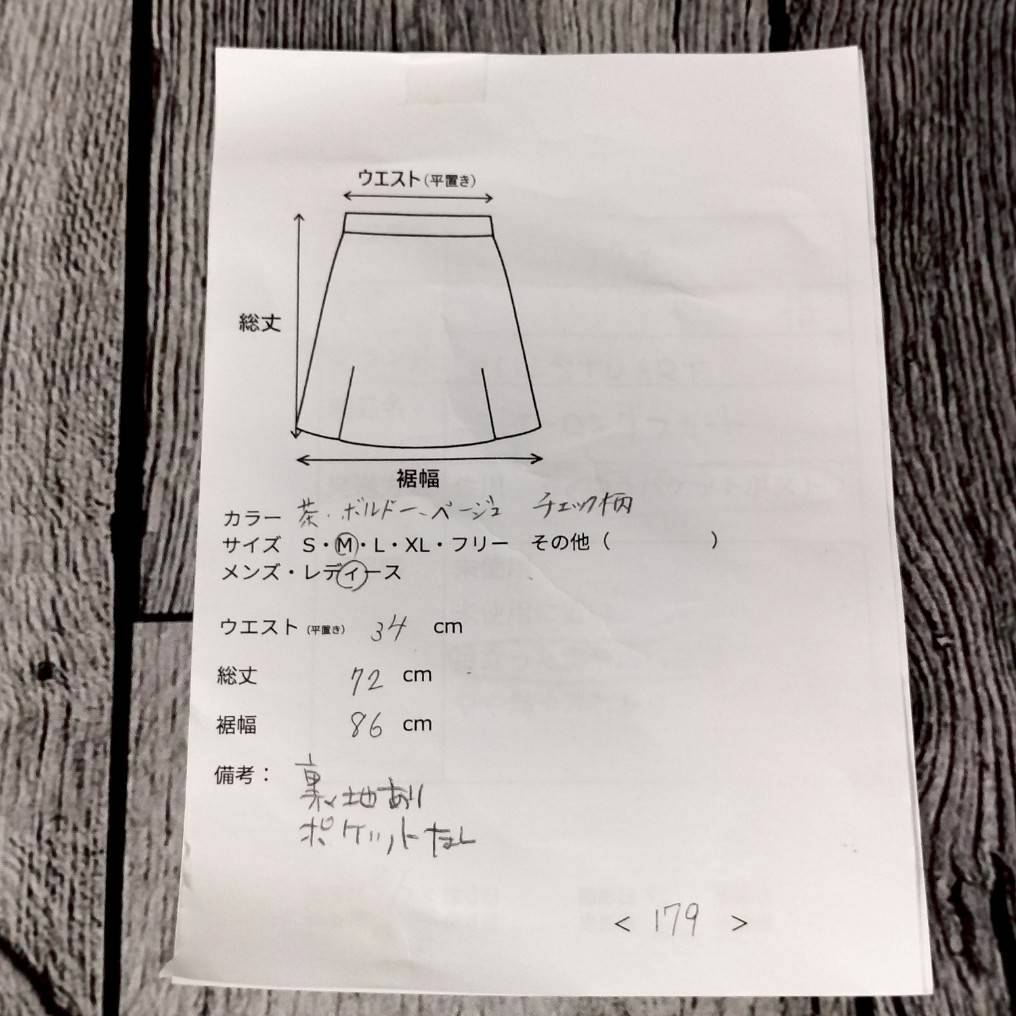 ウエスト(平置き)
総丈
裾幅
カラー 茶・ボルドー、ベージュ チェック柄
サイズ S・M・L・XL・フリー その他 ( )
メンズ・レディース
ウエスト (平置き) 34 cm
総丈 72 cm
裾幅 86 cm
備考： 裏地あり
ポケットなし
< 179 >